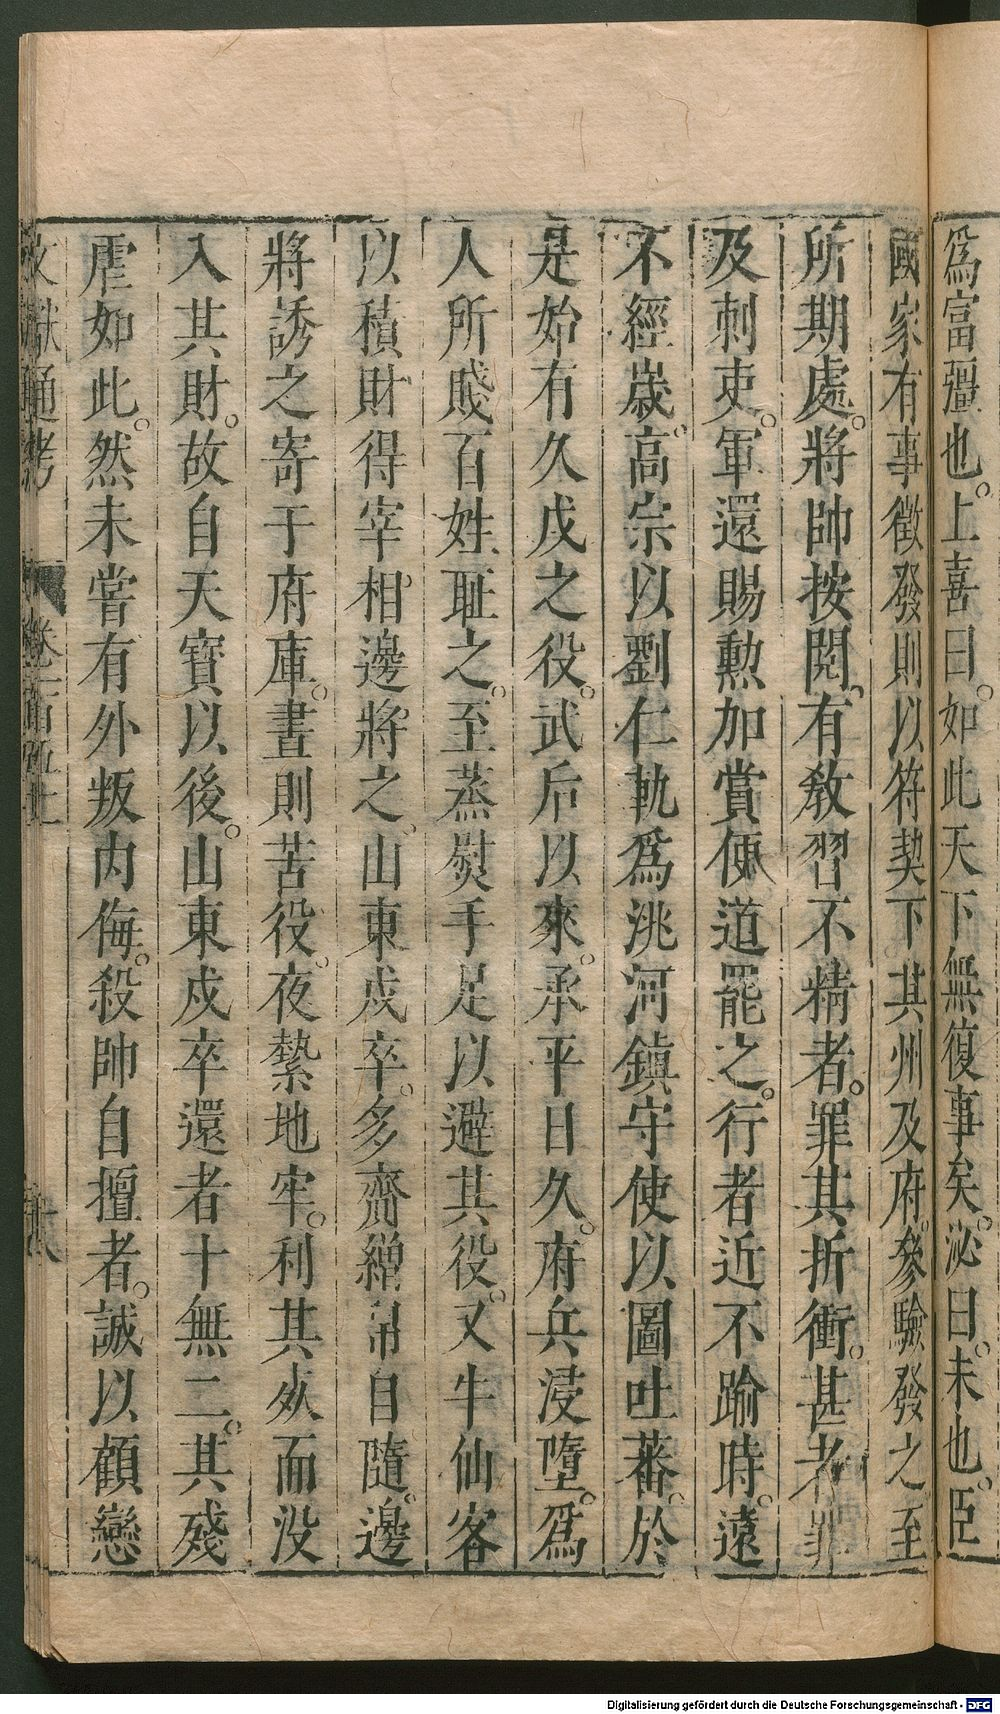 爲富彊也。上喜曰。如此天下無復事矣。泌曰。未也。臣
國家有事徵發則以符契下其州及府。參驗發之至
所期處。將帥按閱。有教習不精者。罪其折衝。甚者罪
及刺吏。軍還賜勲加賞便道罷之。行者近不踰時。遠
不經歲。高宗以劉仁軌爲洮河鎮守使以圖吐蕃。於
是始有久戍之役。武后以來。承平日久。府兵浸墮。爲
人所賤百姓耻之。至蒸熨手足以避其役。又牛仙客
以積財得宰相。邊將之。山東戍卒。多齎繒帛自隨。邊
將誘之寄于府庫。晝則苦役。夜縶地牢。利其死而没
入其財。故自天寶以後。山東戍卒還者十無二。其殘
虐如此。然未嘗有外叛内侮。殺帥自擅者。誠以顧戀
文獻通考 卷一百五十一
Digitalisierung gefördert durch die Deutsche Forschungsgemeinschaft - DFG